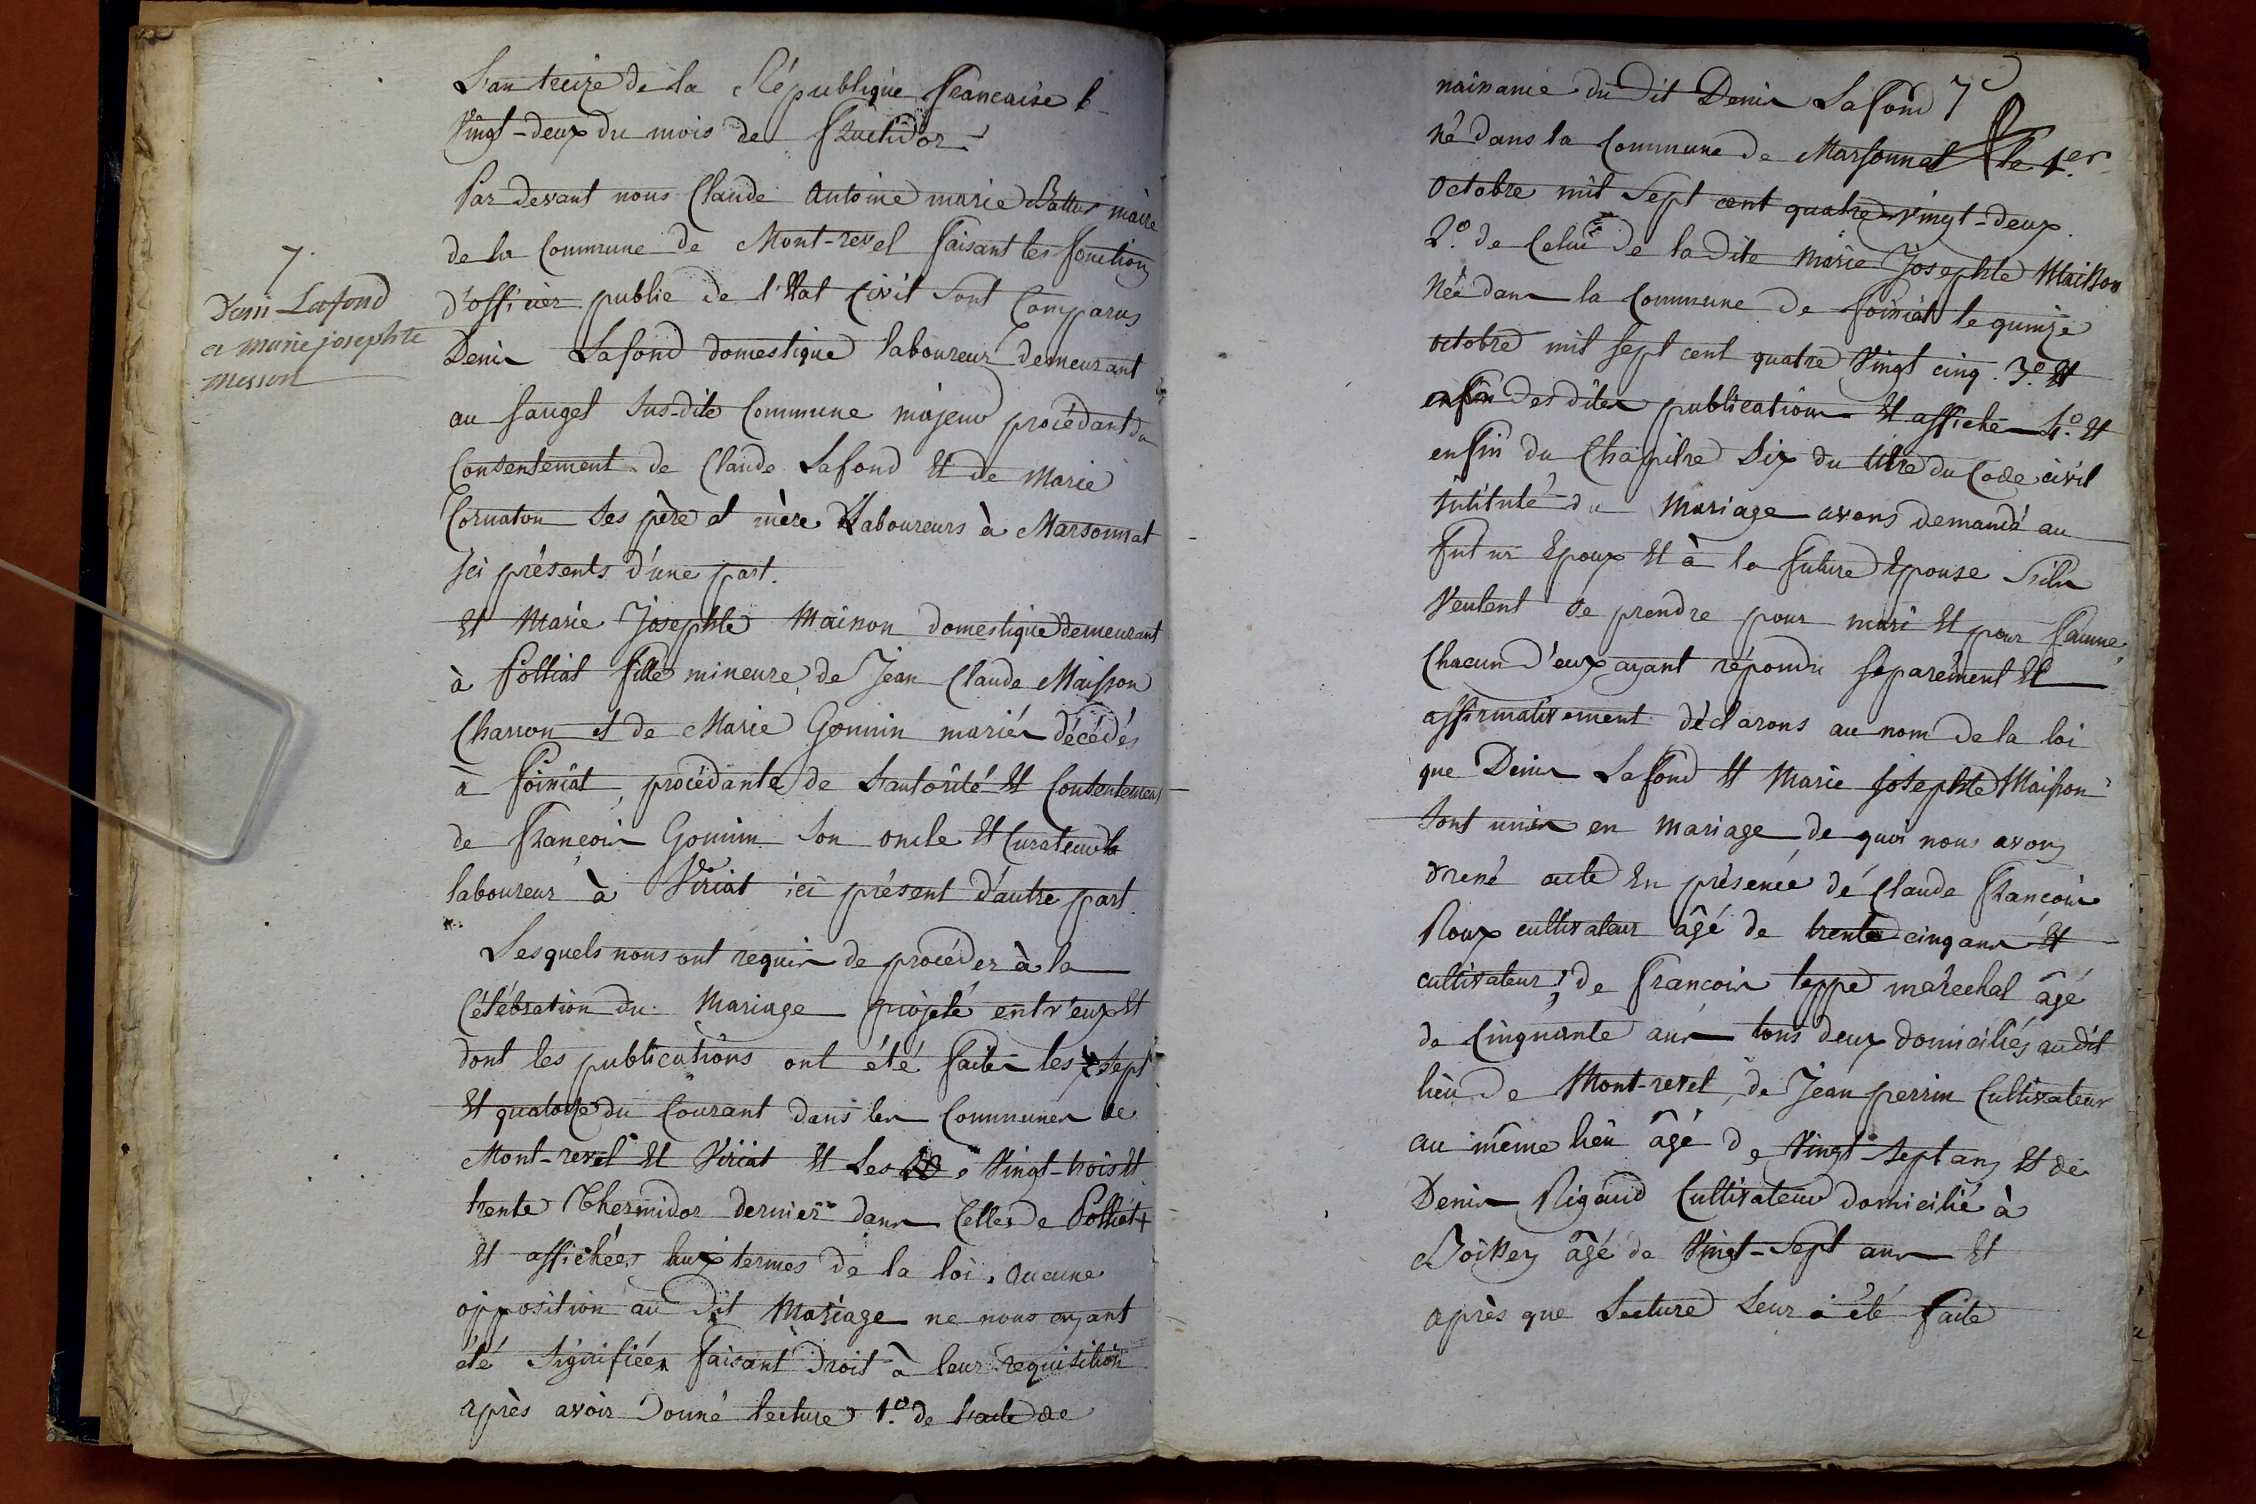 L'an treize de la République francaise le
Vingt-deux du mois de fructidor
Par devant nous Claude Antoine marie Battur maire
de la Commune de Mont-revel faisant les fonctions
7.
Deni Lafond
et marie josephte
messon
d'officier public de l'Etat civil sont Comparus
Denis Lafond domestique laboureur demeurant
au sauget sus-dite Commune majeur procédant du
Consentement de Claude Lafond Et de Marie
Cornaton ses père et mère Laboureurs à Marsonnat
Ici présents d'une part.
Et Marie Josephte Maisson domestique demeurant
à Polliat fille mineure de Jean Claude Maisson
Charron et de Marie Gonnin mariés décédés
à foissiat, procédante de L'autorité Et Consentement
de françois Gonnin son oncle Et Curateur
laboureur à Viriat ici présent d'autre part.
Lesquels nous ont requis de procéder à la
Célébration du Mariage projeté entr'eux Et
dont les publications ont été faites les sept
Et quatorze du Courant dans les Communes de
Mont-revel Et Viriat Et Les Vingt-trois Et
trente Thermidor dernier dans Celles de Polliat
Et affichées aux termes de la loi. aucune
opposition au dit Mariage ne nous ayant
été signifiées faisant droit à leur requisition
après avoir Donné lecture 1.º de L'acte de
7
naissance du dit Denis Lafond
né dans la Commune de Marsonnat le 1.er
octobre mil sept cent quatre vingt-deux.
2.º de Celui de la dite Marie Josephte Maisson
Née dans la Commune de foissiat le quinze
octobre mil sept cent quatre Vingt cinq. 3.º Et
enfin des dites publications Et affiches 4.º Et
enfin du Chapitre Six du titre du Code civil
Intitulé du Mariage avons demandé au
futur Epoux Et à la future Epouse S'ils
Veulent se prendre pour mari Et pour femme,
Chacun d'eux ayant répondu séparément Et
affirmativement déclarons au nom de la loi
que Denis Lafond Et Marie Josephte Maisson
sont unis en Mariage de quoi nous avons
dressé acte En présence dé Claude françois
Roux cultivateur âgé de trente cinq ans Et
cultivateur; de françois teppe maréchal âgé
de Cinquante ans tous deux domiciliés audit
lieu de Mont-revel, de Jean perrin Cultivateur
au même lieu âgé de Vingt-sept ans Et de
Denis Rigaud Cultivateur domicilié à
Boissey âgé de Vingt-sept ans Et
après que Lecture Leur a été faite